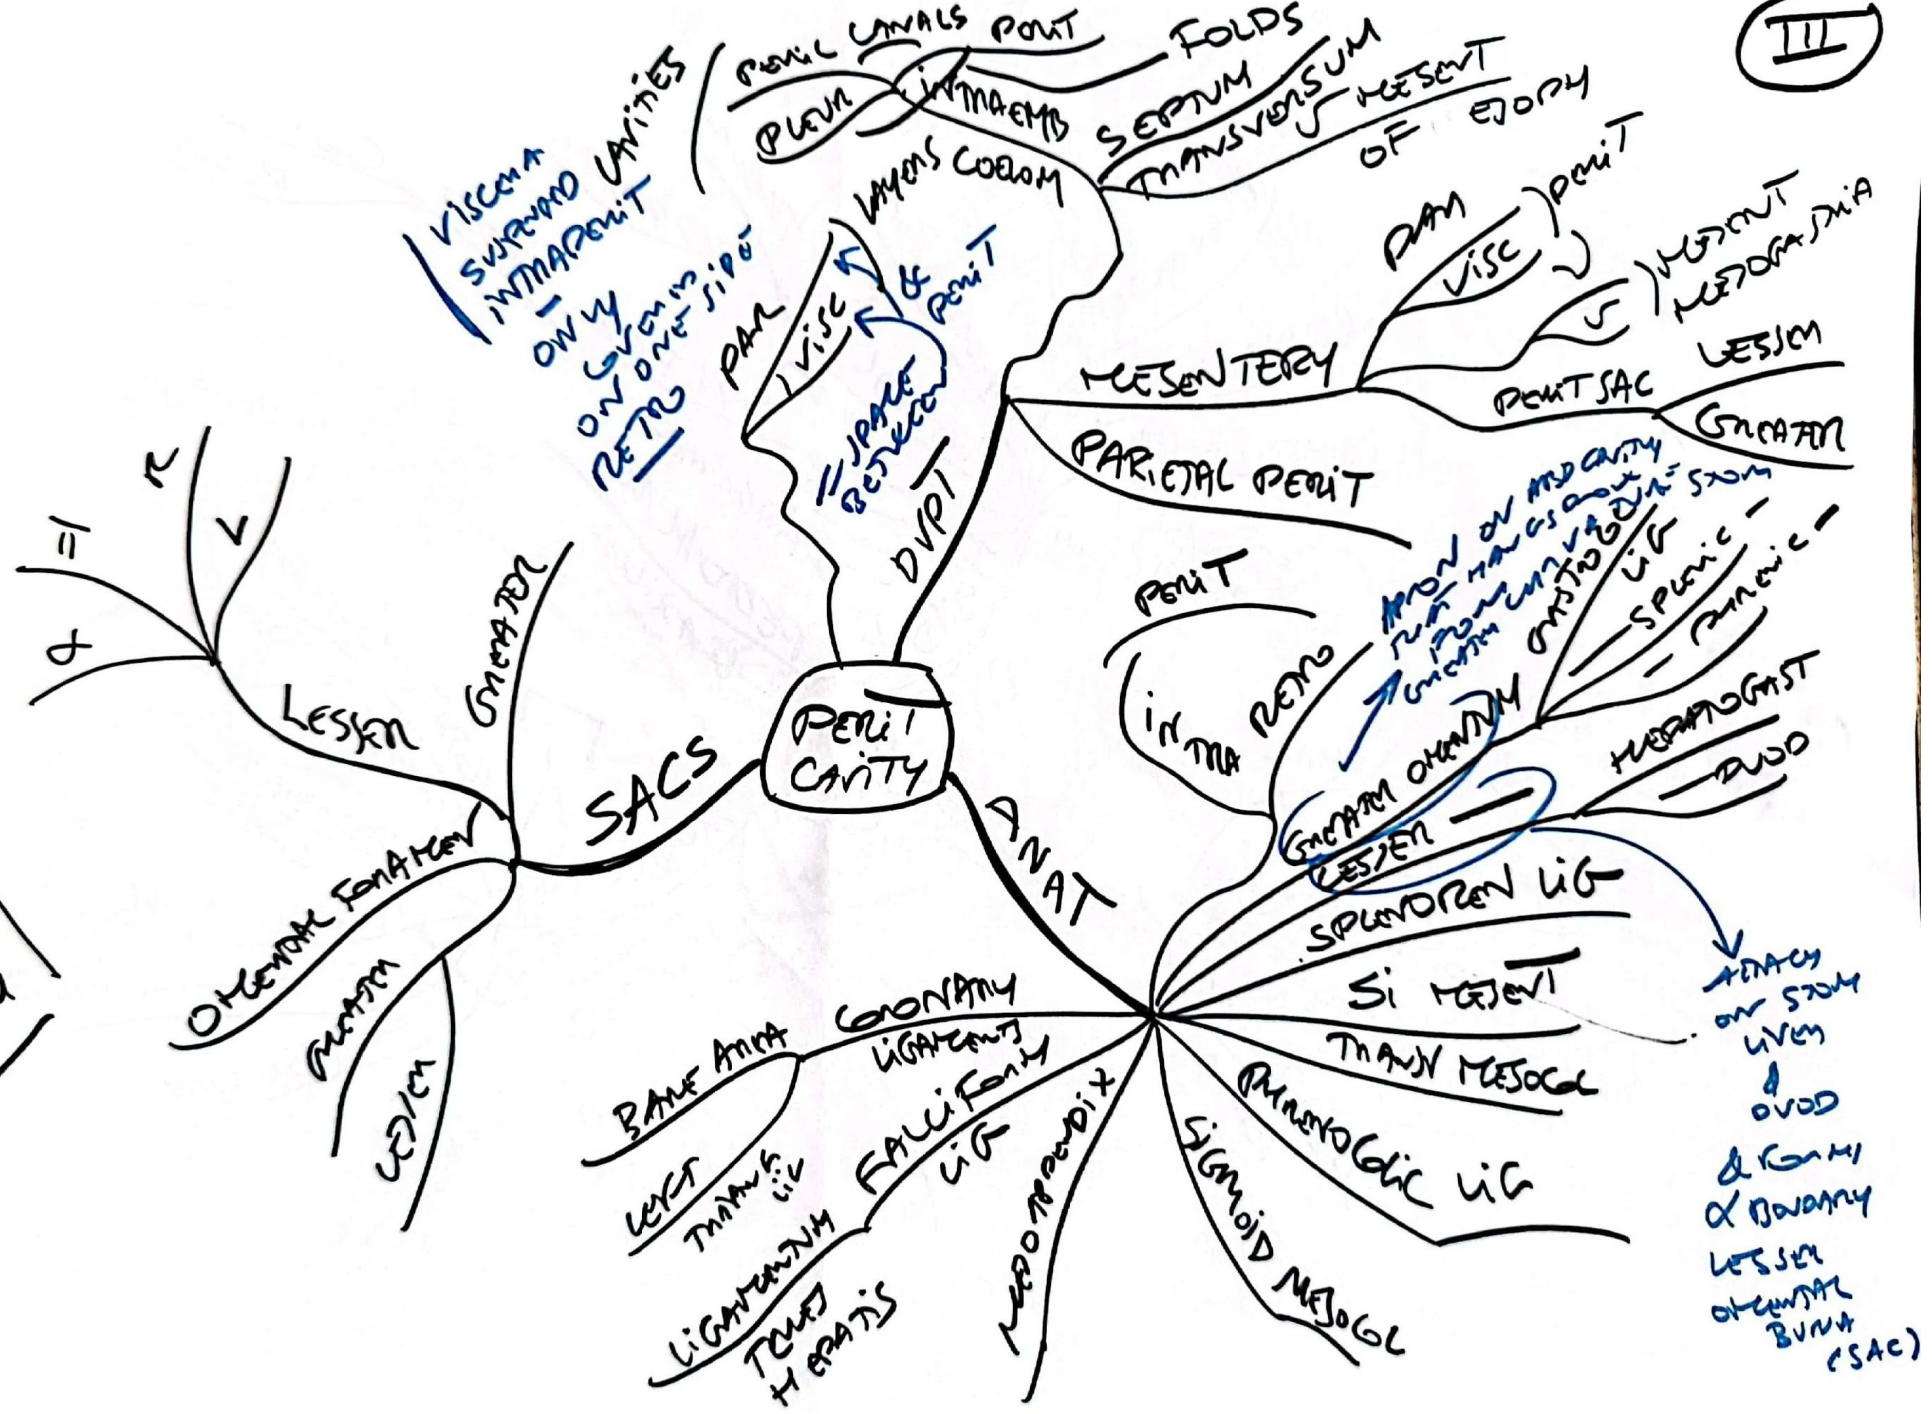 III
PERIT
CAVITY
DVPT
PERIC CANALS
PLEUR
PERIT
CAVITIES
INTRAEMB
COELOM
FOLDS
SEPTUM
TRANSVERSUM
MESENT
OF ESOPH
LAYERS
OF
PERIT
PAR
VISC
= SPACE
BETWEEN
VISCERA
SUSPEND
INTRAPERIT
-
ONLY
COVERING
ON ONE SIDE
RETRO
MESENTERY
PAR
VISC
PERIT
MESENT
MESOGASTRIA
PERIT SAC
LESSER
GREATER
PARIETAL PERIT
ANAT
PERIT
INTRA
RETRO
GREATER OMENTUM
APRON ON ABD CAVITY
HANGS
FROM
GREATER CURVATURE STOM
GASTROCOL
LIG
SPLENIC -
PHRENIC -
LESSER -
HEPATOGAST
- DUOD
ATTACH
STOM
LIVER
&
DUOD
& FORMS
BOUNDARY
LESSER
OMENTAL
BURSA
(SAC)
SPLENOREN LIG
SI MESENT
TRANSV MESOCOL
PHRENOCOLIC LIG
SIGMOID MESOCOL
MESOAPPENDIX
FALCIFORM
LIG
LIGAMENTUM
TERES
HEPATIS
CORONARY
LIGAMENTS
BARE AREA
LEFT
TRIANG
LIG
SACS
GREATER
LESSER
R
L
=
OMENTAL FORAMEN
GREATER
LESSER